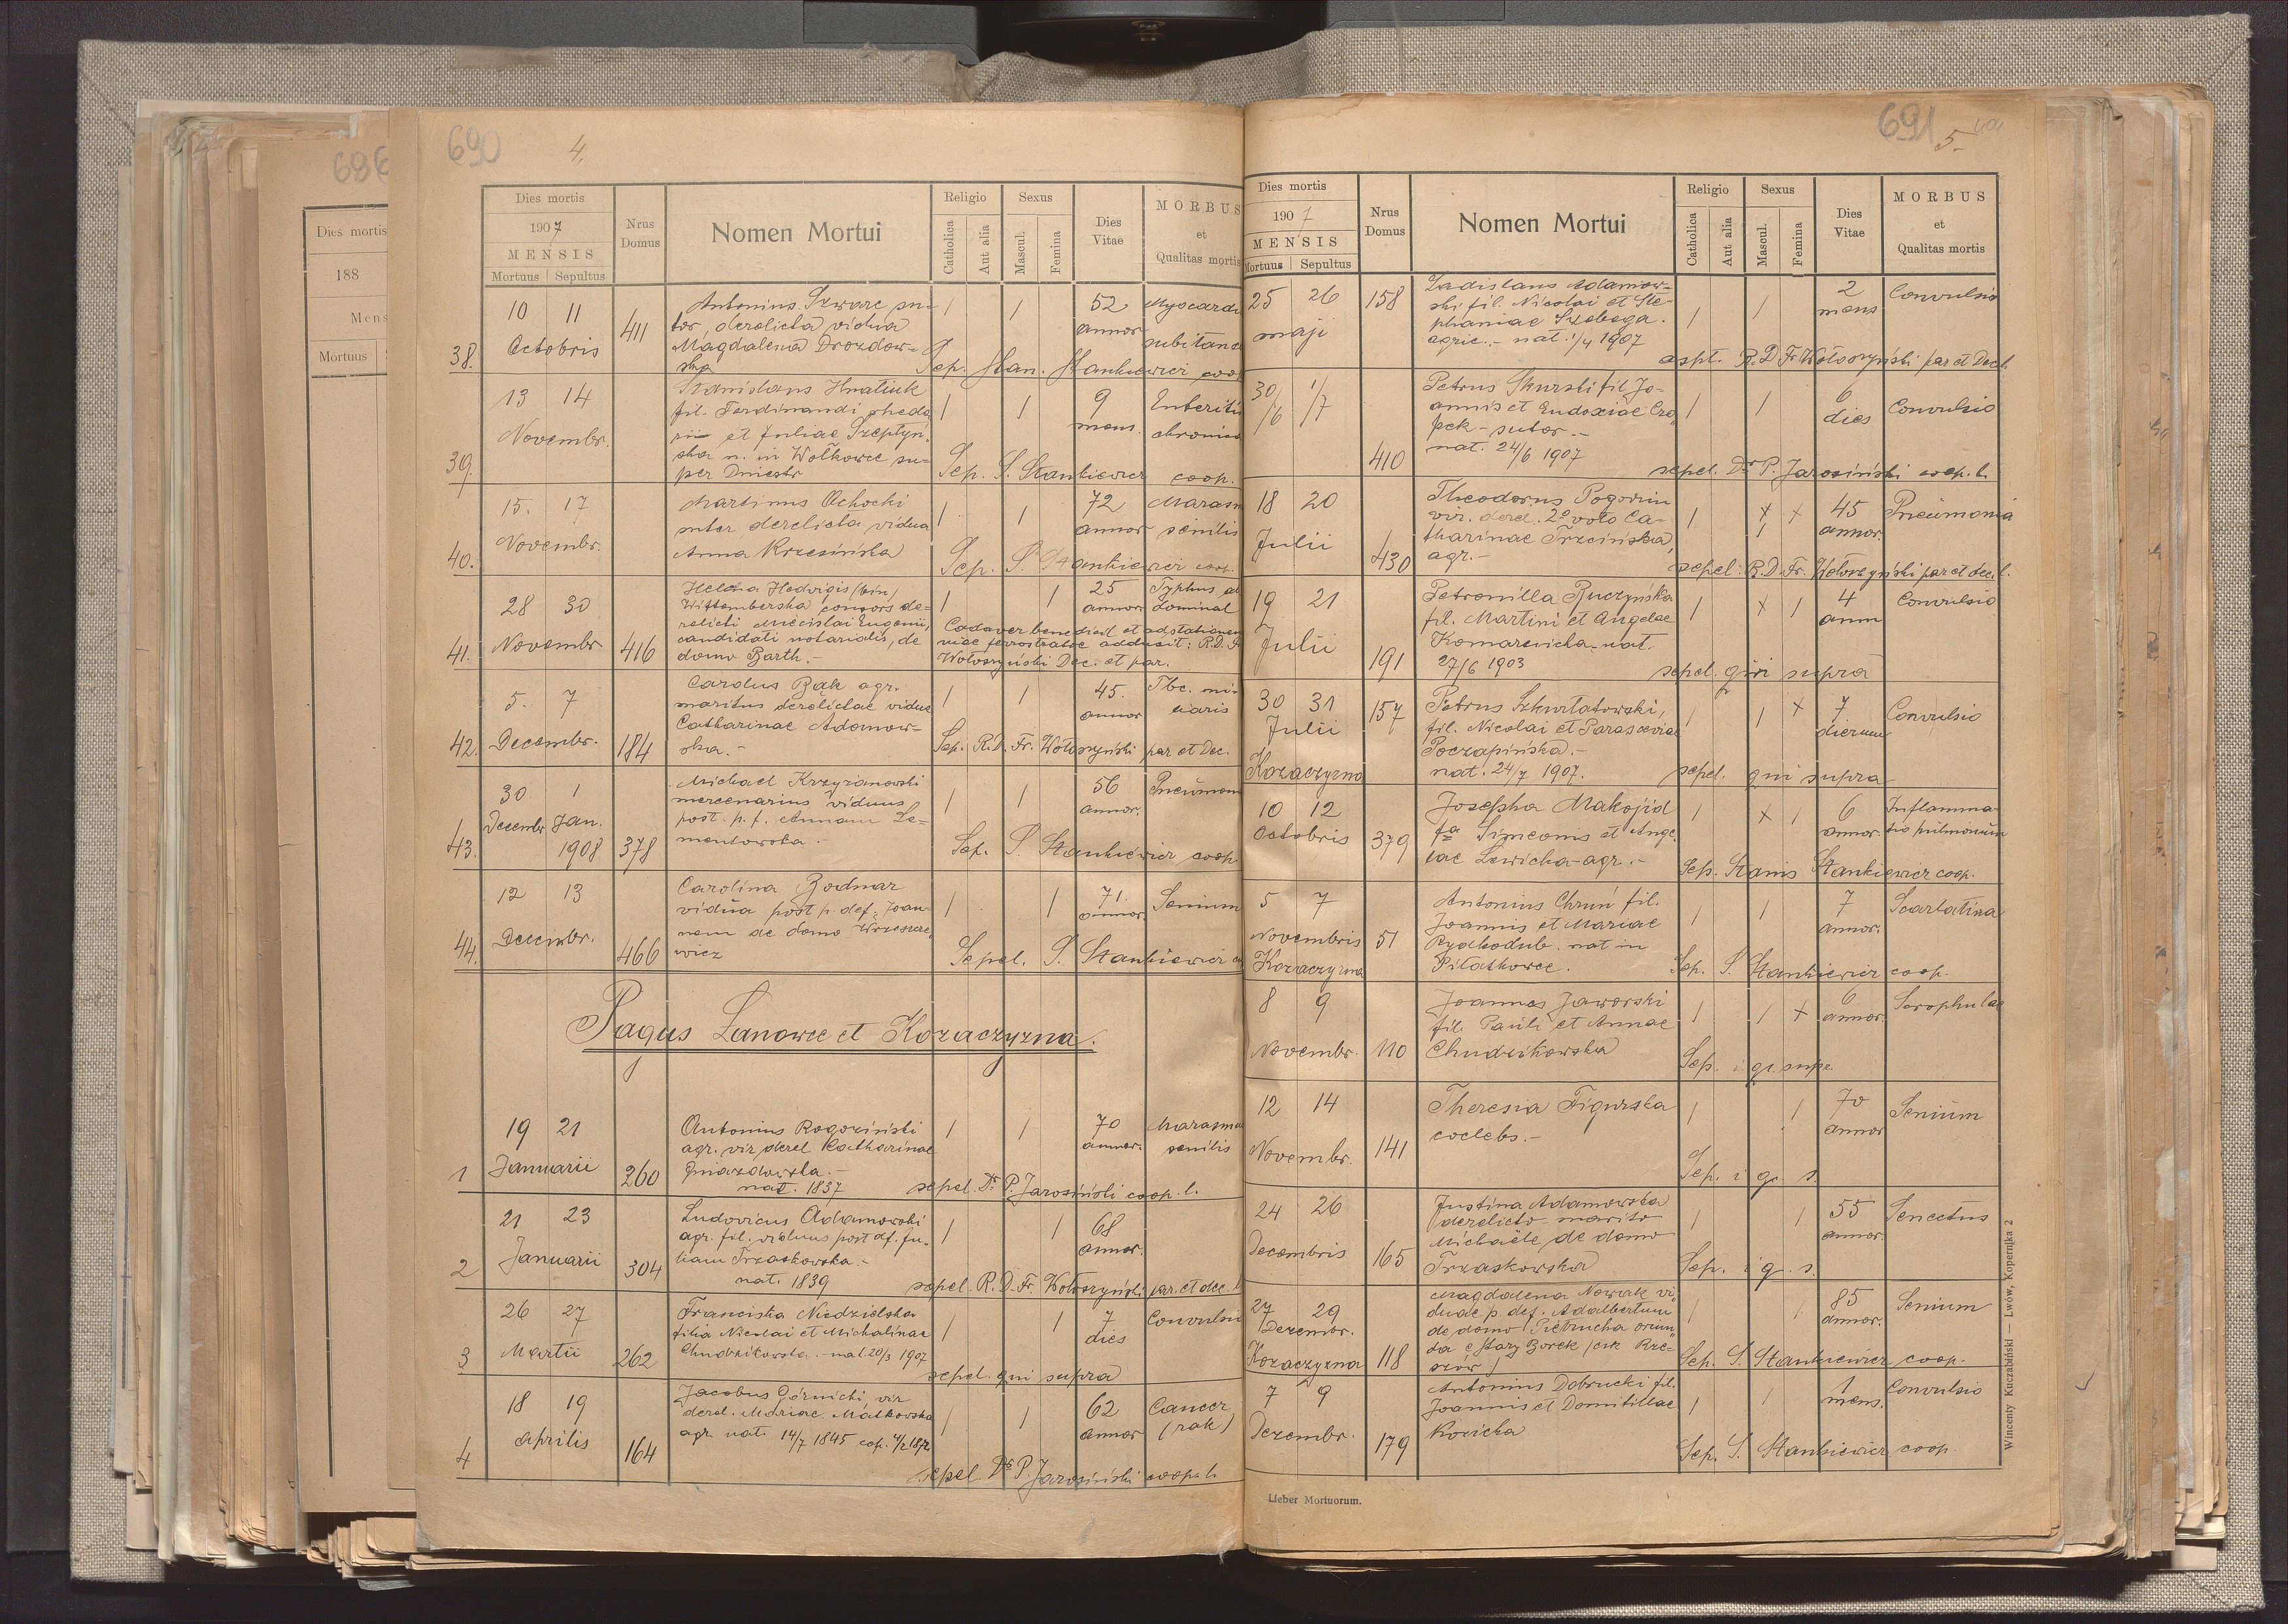 686
Dies mortis
188
Mens
Mortuus
690
4.
Dies mortis
1907
MENSIS
Mortuus Sepultus
Nrus Domus
Nomen Mortui
Religio
Catholica
Aut alia
Sexus
Mascul.
Femina
Dies Vitae
MORBUS
et
Qualitas mortis
38. 10 11 Octobris 411
Antonius Szwarc su-
tor, derelicta vidua
Magdalena Drozdow-
ska
1 1 52 annor. Myocardi subitanea
Sep. Stan. Stankiewicz coop
39. 13 14 Novembr.
Stanislaus Hnatiuk
fil. Ferdinandi rheda
rii et Juliae Szeptyń,
ska n. in Wołkowce su-
per Dniestr
1 1 9 mens. Enteritis chronica
Sep. S. Stankiewicz coop.
40. 15. 17 Novembr.
Martinus Ochocki
sutor derelicta vidua
Anna Krzesińska
1 1 72 annor Marasm senilis
Sep. S. Stankiewicz coop.
41. 28 30 Novembr 416
Helena Hedvigis (bin)
Wittemberska consors de-
relicti Miecislai Eugenii,
candidati notarialis, de
domo Barth.-
1 1 25 annor Typhus
Cadaver benedixit et ad stationem
viae ferrostratae adduxit: R.D.
Wołoszyński Dec. et par.
42. 5. 7 Decembr. 184
Carolus Bąk agr.
maritus derelictae viduae
Catharinae Adamow-
ska.-
1 1 45. annor Tbc. mi-
liaris
Sep. R.D. Fr. Wołoszyński par et Dec.
43. 30 Decembr 1 Jan. 1908 378
Michael Krzyżanowski
mercenarius viduus
post p. f. Annam Le-
mentowska.-
1 1 56 annor. Pneumon
Sep. S. Stankiewicz coop
44. 12 13 Decembr. 466
Carolina Bodnar
vidua post p. def. Joan-
nem de domo Wrzeszcze,
wicz
1 1 71. annor. Senium
Sepel. S. Stankiewicz
Pagus Lanowce et Kozaczyzna.
1 19 21 Januarii 260
Antonius Rogoziński
agr. vir derel Catharinae
Gniazdowska.-
nat. 1837
1 1 70 annor. Marasmus senilis
sepel. Dr P. Jarosiński coop. l.
2 21 23 Januarii 304
Ludovicus Adamowski
agr. fil. viduus post df. Ju-
liam Trzaskowska.-
nat. 1839
1 1 68 annor.
sepel. R.D. Fr. Wołoszyński par. et dec. l
3 26 27 Martii 262
Franciska Niedzielska
filia Nicolai et Michalinae
Chudzikowska.- nat. 20/3 1907
1 1 7 dies Convulsi
sepel. qui supra
4 18 19 Aprilis 164
Jacobus Górnicki, vir
derel. Mariae Małkowska
agr. nat. 14/7 1845
1 1 62 annor Cancer
(rak)
sepel. Dr P. Jarosiński coop. l.
691
5.
Dies mortis
1907
MENSIS
Mortuus Sepultus
Nrus Domus
Nomen Mortui
Religio
Catholica
Aut alia
Sexus
Mascul.
Femina
Dies Vitae
MORBUS
et
Qualitas mortis
25 26 maji 158
Ladislaus Adamow-
ski fil. Nicolai et Ste-
phaniae Szeboga.
agric.- nat. 1/4 1907
1 1 2 mens Convulsio
aspt. R.D Fr Wołoszyński par et Dec l.
30/6 1/7 410
Petrus Skurski fil Jo-
annis et Eudoxiae Cza,
pek - sutor.-
nat. 24/6 1907
1 1 6 dies Convulsio
sepel. Dr P. Jarosiński coop. l.
18 20 Julii 430
Theodorus Pogowin
vir. derel. 2o voto Ca-
tharinae Trzcińska,
agr.-
1 x 1 x 45 annor. Pneumonia
sepel. R.D. Fr. Wołoszyński par et dec. l.
19 21 Julii 191
Petronilla Ruczyńska
fil. Martini et Angelae
Komarnicka. nat.
27/6 1903
1 x 1 4 ann Convulsio
sepel. qui supra
30 31 Julii 157
Kozaczyzna
Petrus Szkurłatowski,
fil. Nicolai et Parasceviae
Poczapińska.-
nat. 24/7 1907.
1 1 x 7 dierum Convulsio
sepel. qui supra
10 12 Octobris 379
Josepha Makojid
fa Simeonis et Ange,
lae Lewicka - agr.-
1 x 1 6 annor. Inflamma-
tio pulmonum
Sep. Stanis Stankiewicz coop.
5 7 Novembris 51
Kozaczyzna
Antonius Chruń fil.
Joannis et Mariae
Rydkodub. nat in
Piłatkowce.
1 1 7 annor. Scarlatina
Sep. S. Stankiewicz coop.
8 9 Novembr. 110
Joannes Jaworski
fil. Pauli et Annae
Chudzikowska
1 1 x 6 annor. Scrophulae
Sep. i q. supr
12 14 Novembr. 141
Theresia Figurska
coelebs.-
1 1 70 annor Senium
Sep. i q. s.
24 26 Decembris 165
Justina Adamowska
derelicto marito
Michaele de domo
Trzaskowska
1 1 55 annor. Senectus
Sep. i q. s.
27 29 Dezembr.
Kozaczyzna 118
Magdalena Nowak vi,
duae p. def. Adalbertum
de domo Pietrucha oriun,
da e Stary Borek (cirk Rze-
szów.)
1 1 85 annor. Senium
Sep. S. Stankiewicz coop.
7 9 Dezembr. 179
Antonius Dobrucki fil.
Joannis et Domitillae
Kozicka
1 1 1 mens. Convulsio
Sep. S. Stankiewicz coop.
Lieber Mortuorum.
Wincenty Kuczabiński — Lwów, Kopernika 2